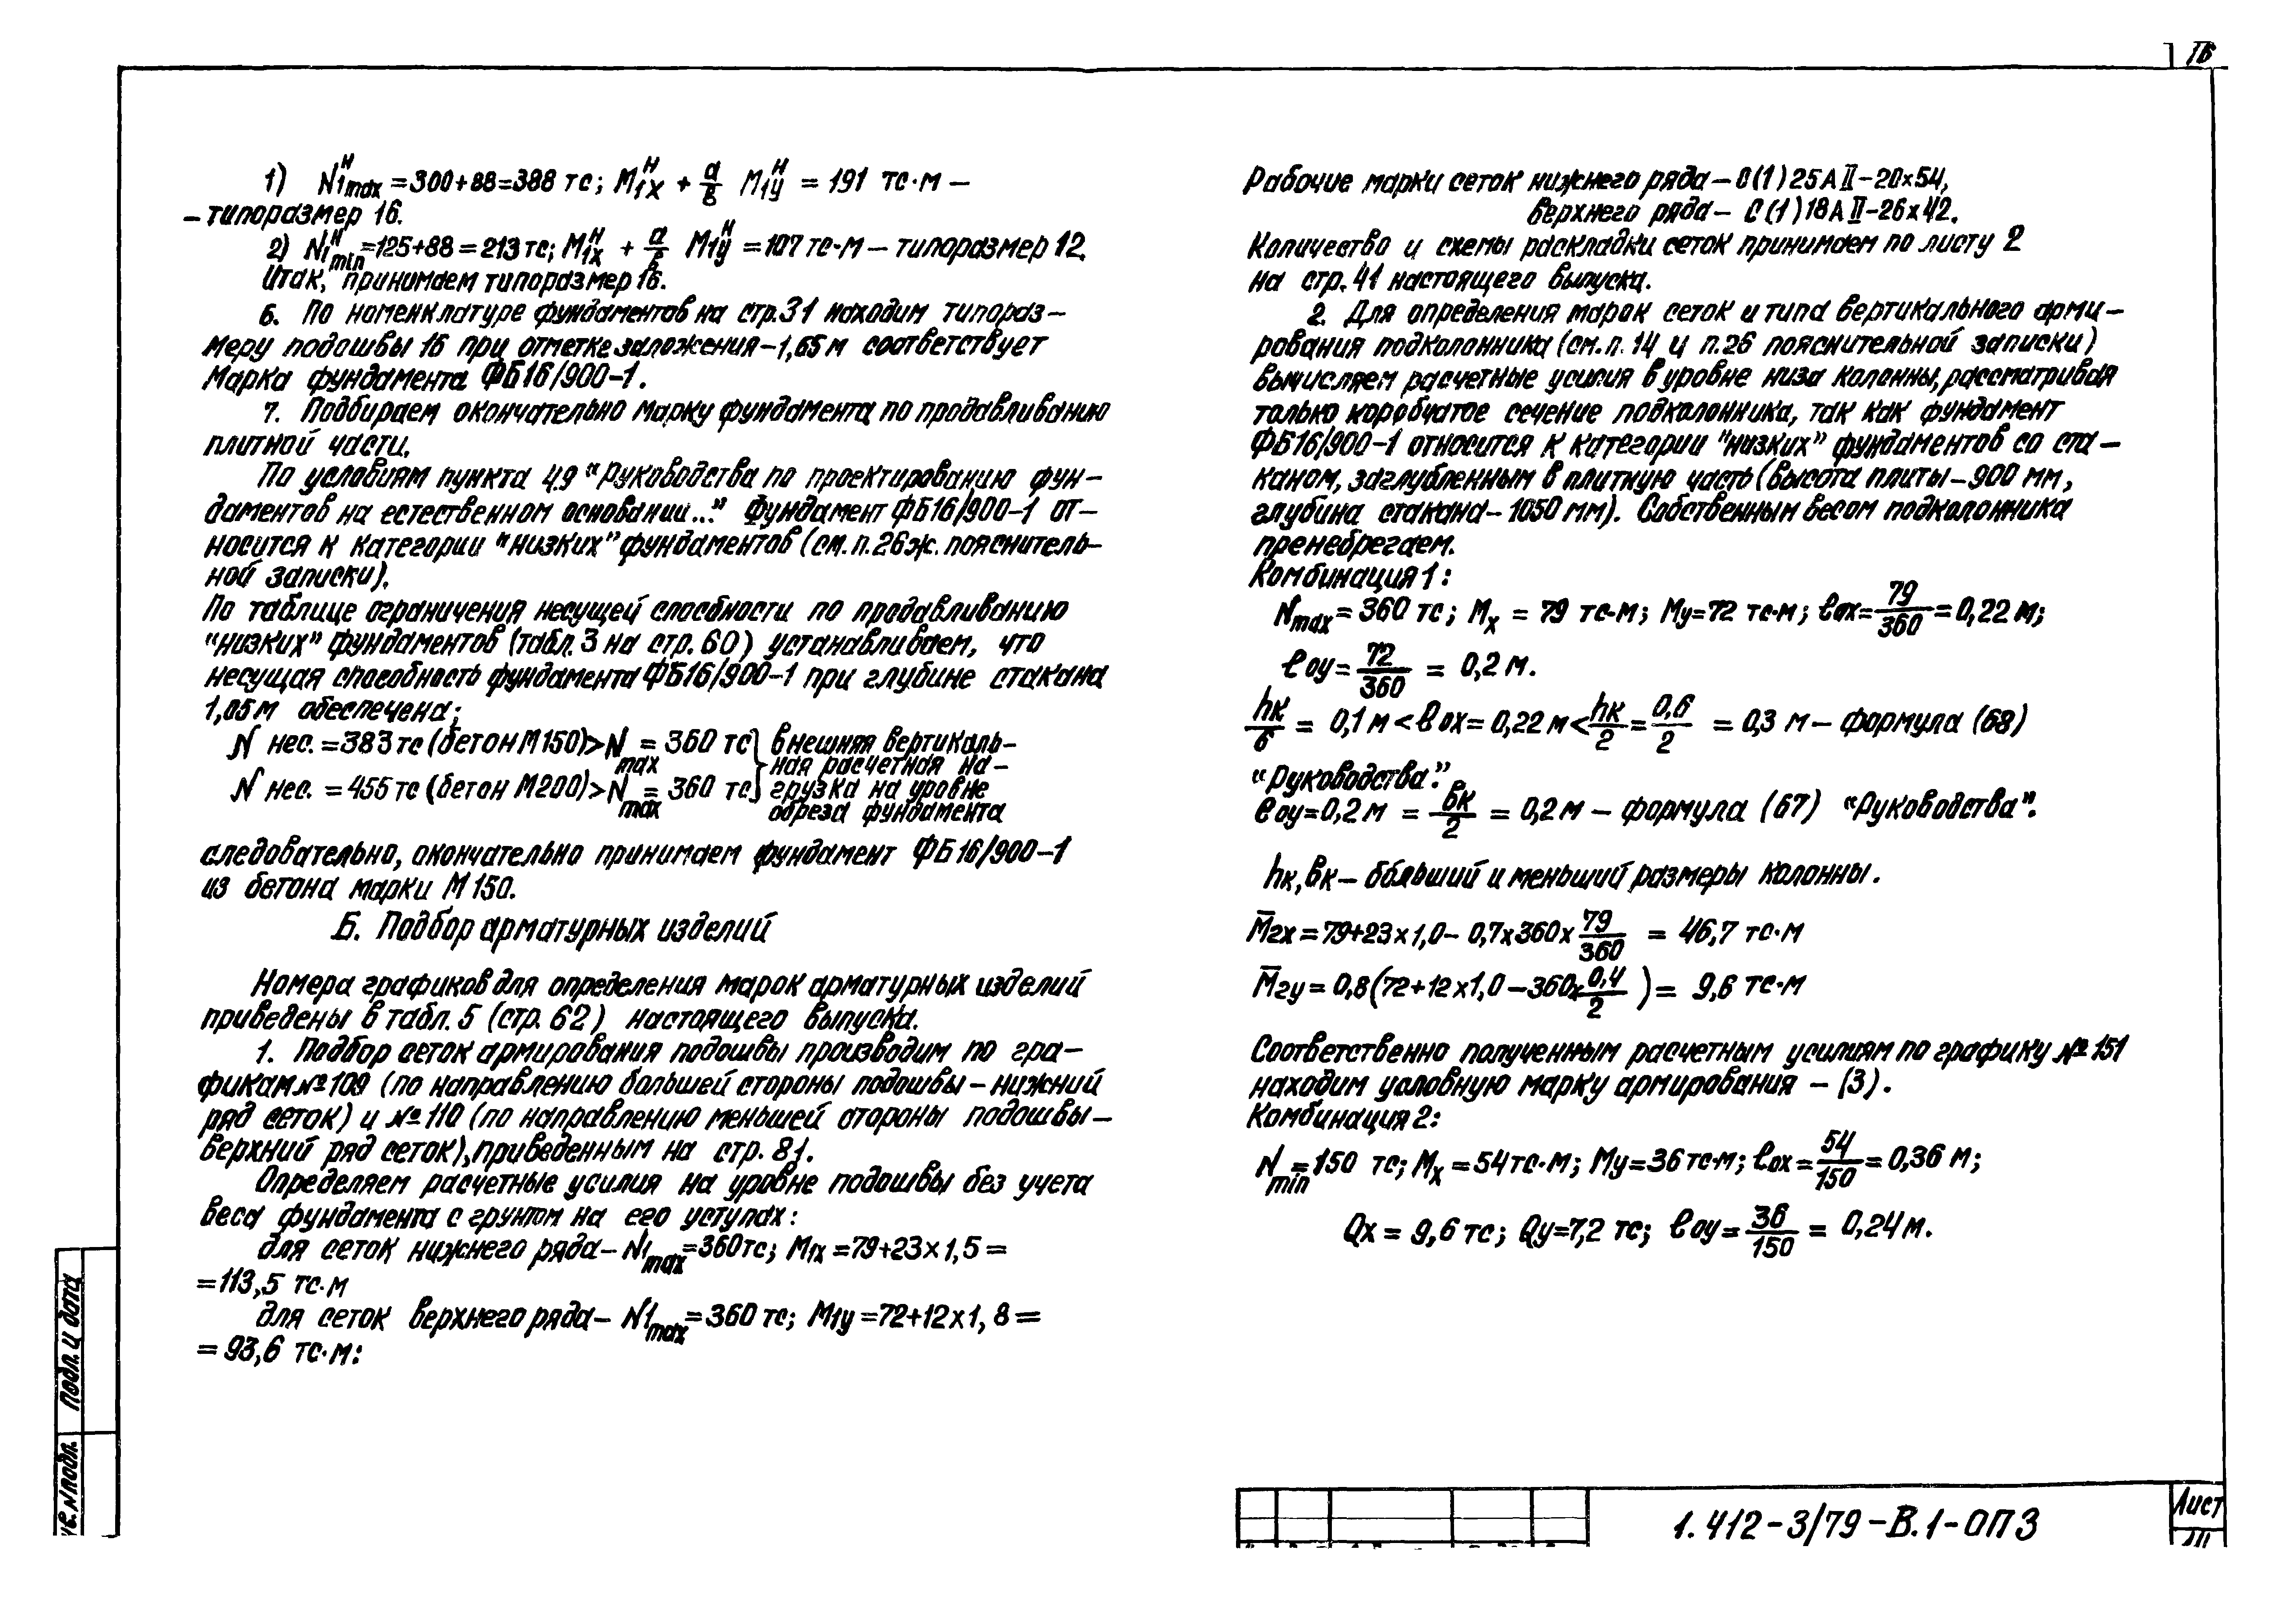 16
1) N₁ᴴmax = 300+88=388 тс; M₁ₓᴴ + a/в M₁yᴴ = 191 тс·м –
– типоразмер 16.
2) N₁ᴴmin =125+88=213 тс; M₁ₓᴴ + a/в M₁yᴴ =107 тс·м – типоразмер 12.
Итак, принимаем типоразмер 16.
6. По номенклатуре фундаментов на стр.31 находим типораз-
меру подошвы 16 при отметке заложения –1,65 м соответствует
марка фундамента ФБ16/900-1.
7. Подбираем окончательно марку фундамента по продавливанию
плитной части.
По условиям пункта 4.9 "Руководства по проектированию фун-
даментов на естественном основании..." Фундамент ФБ16/900-1 от-
носится к категории "низких" фундаментов (см. п. 26ж. пояснитель-
ной записки).
По таблице ограничения несущей способности по продавливанию
"низких" фундаментов (табл. 3 на стр. 60) устанавливаем, что
несущая способность фундамента ФБ16/900-1 при глубине стакана
1,05 м обеспечена;
N нес. = 383 тс (бетон М150) > N max = 360 тс } внешняя вертикаль-
ная расчетная на-
N нес. = 455 тс (бетон М200) > N max = 360 тс } грузка на уровне
обреза фундамента
следовательно, окончательно принимаем фундамент ФБ16/900-1
из бетона марки М150.
Б. Подбор арматурных изделий
Номера графиков для определения марок арматурных изделий
приведены в табл. 5 (стр. 62) настоящего выпуска.
1. Подбор сеток армирования подошвы производим по гра-
фикам №109 (по направлению большей стороны подошвы – нижний
ряд сеток) и №110 (по направлению меньшей стороны подошвы –
верхний ряд сеток), приведенным на стр. 81.
Определяем расчетные усилия на уровне подошвы без учета
веса фундамента с грунтом на его уступах:
для сеток нижнего ряда – N₁max = 360 тс; M₁x = 79+23×1,5 =
= 113,5 тс·м
для сеток верхнего ряда – N₁max = 360 тс; M₁y = 72+12×1,8 =
= 93,6 тс·м:
Рабочие марки сеток нижнего ряда – С(1)25АII-20×54,
верхнего ряда – С(1)18АII-26×42.
Количество и схемы раскладки сеток принимаем по листу 2
на стр. 41 настоящего выпуска.
2. Для определения марок сеток и типа вертикального арми-
рования подколонника (см. п. 14 и п.26 пояснительной записки)
вычисляем расчетные усилия в уровне низа колонны, рассматривая
только коробчатое сечение подколонника, так как фундамент
ФБ16/900-1 относится к категории "низких" фундаментов со ста-
каном, заглубленным в плитную часть (высота плиты – 900 мм,
глубина стакана – 1050 мм). Собственным весом подколонника
пренебрегаем.
Комбинация 1:
Nmax = 360 тс; Mx = 79 тс·м; My = 72 тс·м; eox = 79/360 = 0,22 м;
eoy = 72/360 = 0,2 м.
hк/6 = 0,1 м < eox = 0,22 м < hк/2 = 0,6/2 = 0,3 м – формула (68)
"Руководства".
eoy = 0,2 м = вк/2 = 0,2 м – формула (67) "Руководства".
hк, вк – больший и меньший размеры колонны.
M̄гх = 79+23×1,0 – 0,7×360×79/360 = 46,7 тс·м
M̄гу = 0,8(72+12×1,0–360×0,4/2) = 9,6 тс·м
Соответственно полученным расчетным усилиям по графику №151
находим условную марку армирования – (3).
Комбинация 2:
Nmin = 150 тс; Mx = 54 тс·м; My = 36 тс·м; eox = 54/150 = 0,36 м;
Qx = 9,6 тс; Qy = 7,2 тс; eoy = 36/150 = 0,24 м.
Подп. и дата
N подл.
1.412-3/79-В.1-ОПЗ
Лист